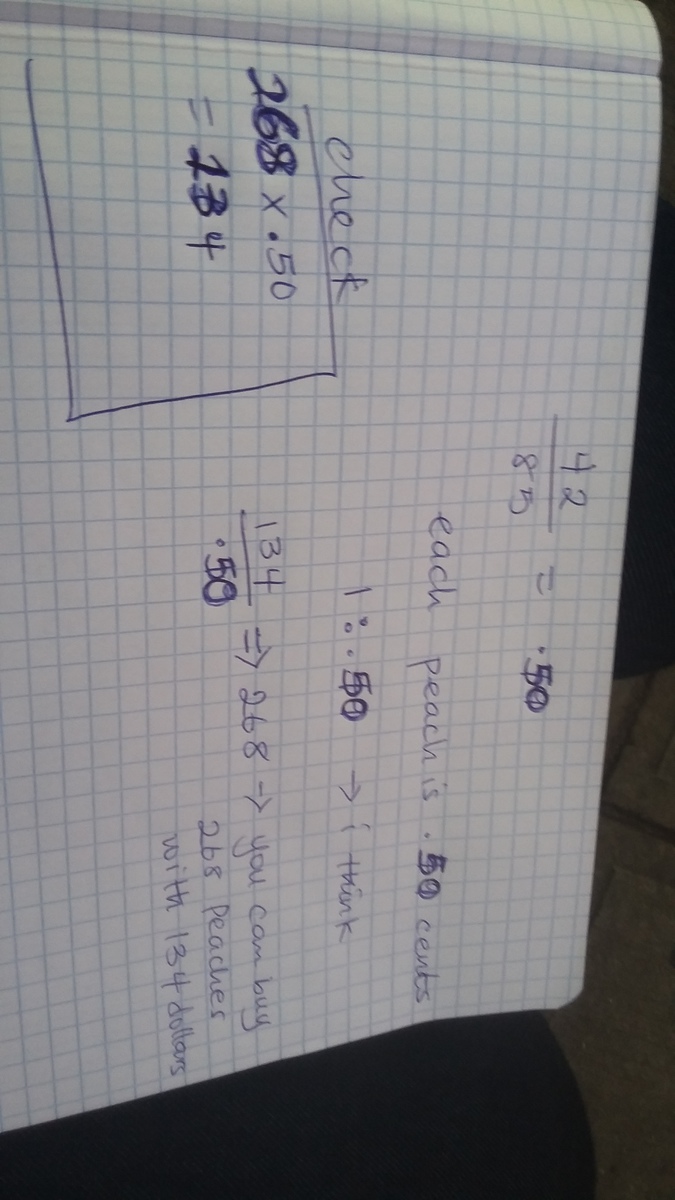 42
85 = .50
each peach is .50 cents
1 : .50 → i think
134
.50 ⇒ 268 → you can buy
268 peaches
with 134 dollars
check
268 x .50
= 134